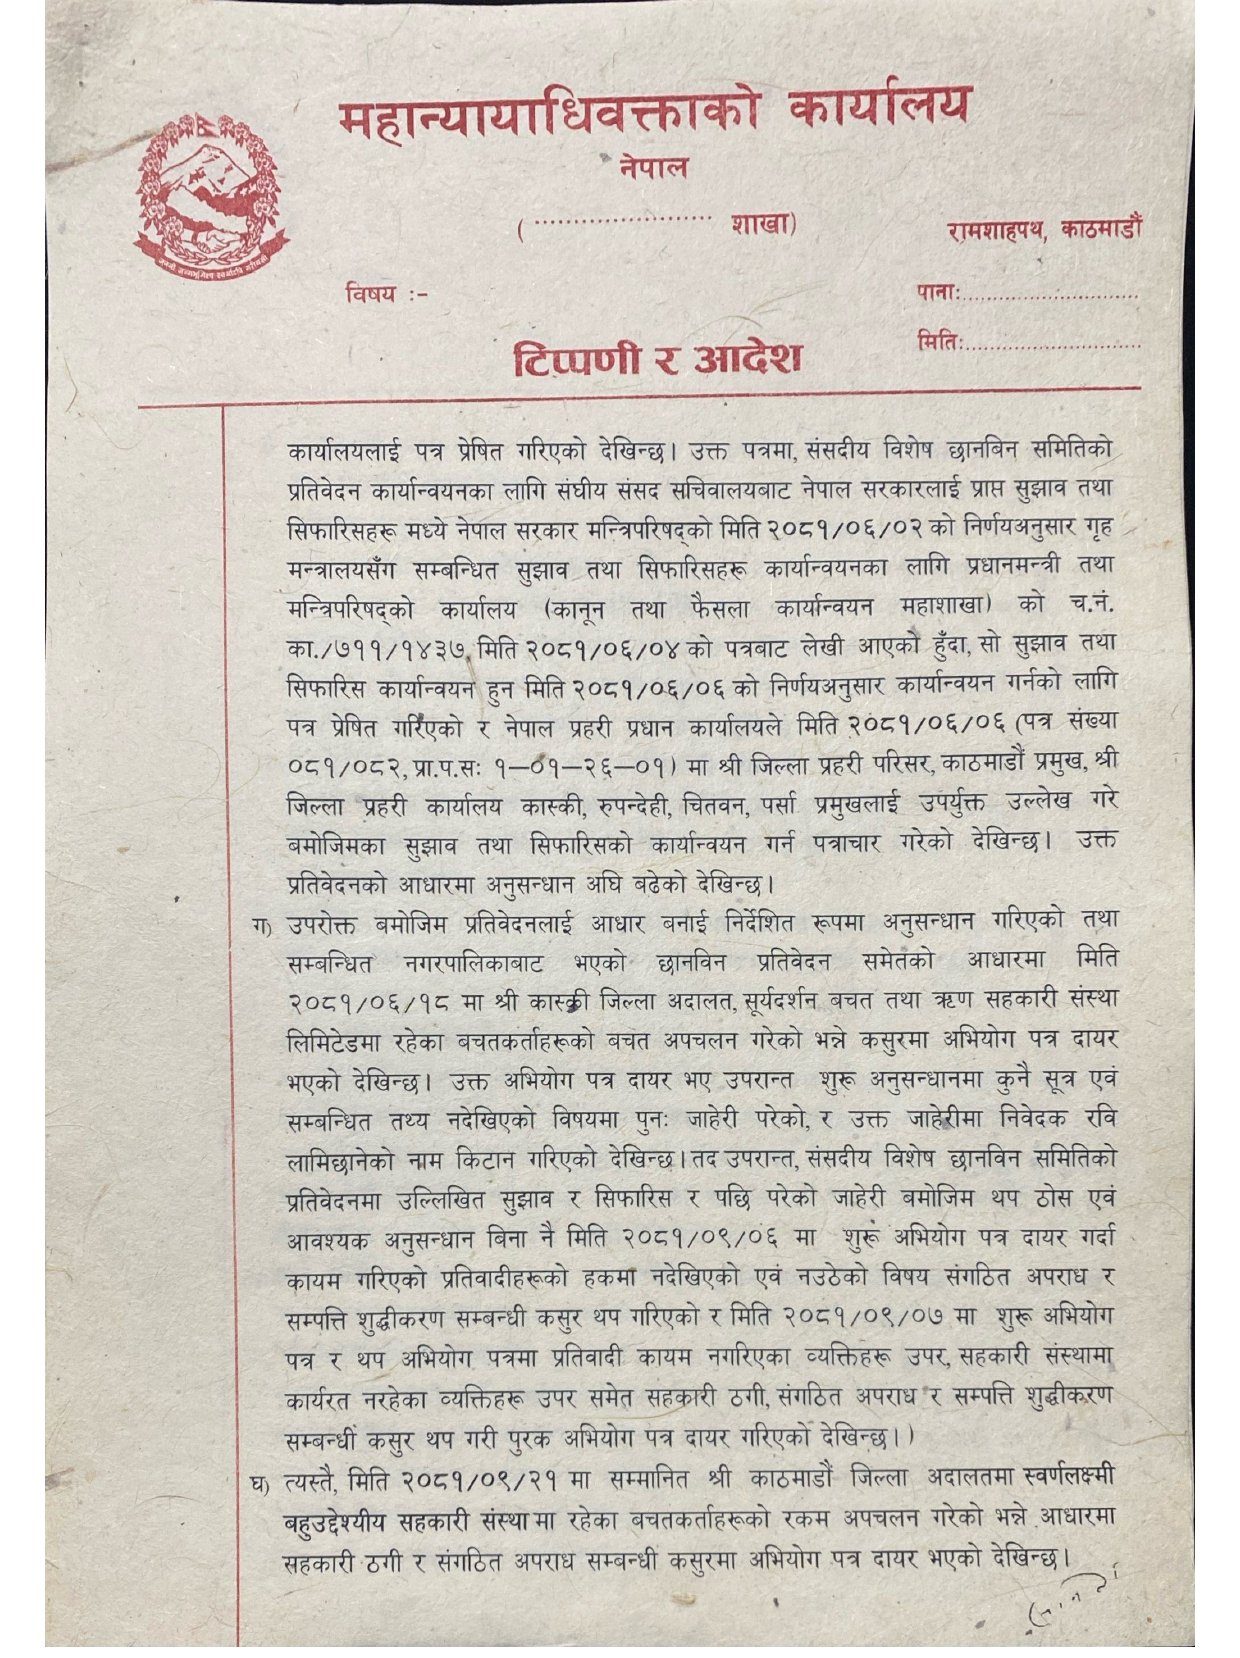 महान्यायाधिवक्ताको कार्यालय
नेपाल
(........................ शाखा)
रामशाहपथ, काठमाडौं
विषय :-
पाना:..............................
मिति:..............................
टिप्पणी र आदेश
कार्यालयलाई पत्र प्रेषित गरिएको देखिन्छ। उक्त पत्रमा, संसदीय विशेष छानविन समितिको
प्रतिवेदन कार्यान्वयनका लागि संघीय संसद सचिवालयबाट नेपाल सरकारलाई प्राप्त सुझाव तथा
सिफारिसहरू मध्ये नेपाल सरकार मन्त्रिपरिषद्को मिति २०८१/०६/०२ को निर्णयअनुसार गृह
मन्त्रालयसँग सम्बन्धित सुझाव तथा सिफारिसहरू कार्यान्वयनका लागि प्रधानमन्त्री तथा
मन्त्रिपरिषद्को कार्यालय (कानून तथा फैसला कार्यान्वयन महाशाखा) को च.नं.
का./७११/१४३७, मिति २०८१/०६/०४ को पत्रबाट लेखी आएको हुँदा, सो सुझाव तथा
सिफारिस कार्यान्वयन हुन मिति २०८१/०६/०६ को निर्णयअनुसार कार्यान्वयन गर्नको लागि
पत्र प्रेषित गरिएको र नेपाल प्रहरी प्रधान कार्यालयले मिति २०८१/०६/०६ (पत्र संख्या
०८१/०८२, प्रा.प.सः १–०१–२६–०१) मा श्री जिल्ला प्रहरी परिसर, काठमाडौं प्रमुख, श्री
जिल्ला प्रहरी कार्यालय कास्की, रुपन्देही, चितवन, पर्सा प्रमुखलाई उपर्युक्त उल्लेख गरे
बमोजिमका सुझाव तथा सिफारिसको कार्यान्वयन गर्न पत्राचार गरेको देखिन्छ। उक्त
प्रतिवेदनको आधारमा अनुसन्धान अघि बढेको देखिन्छ।
ग) उपरोक्त बमोजिम प्रतिवेदनलाई आधार बनाई निर्देशित रूपमा अनुसन्धान गरिएको तथा
सम्बन्धित नगरपालिकाबाट भएको छानविन प्रतिवेदन समेतको आधारमा मिति
२०८१/०६/१८ मा श्री कास्की जिल्ला अदालत, सूर्यदर्शन बचत तथा ऋण सहकारी संस्था
लिमिटेडमा रहेका बचतकर्ताहरूको बचत अपचलन गरेको भन्ने कसुरमा अभियोग पत्र दायर
भएको देखिन्छ। उक्त अभियोग पत्र दायर भए उपरान्त शुरू अनुसन्धानमा कुनै सूत्र एवं
सम्बन्धित तथ्य नदेखिएको विषयमा पुनः जाहेरी परेको, र उक्त जाहेरीमा निवेदक रवि
लामिछानेको नाम किटान गरिएको देखिन्छ। तद उपरान्त, संसदीय विशेष छानविन समितिको
प्रतिवेदनमा उल्लिखित सुझाव र सिफारिस र पछि परेको जाहेरी बमोजिम थप ठोस एवं
आवश्यक अनुसन्धान बिना नै मिति २०८१/०९/०६ मा शुरू अभियोग पत्र दायर गर्दा
कायम गरिएको प्रतिवादीहरूको हकमा नदेखिएको एवं नउठेको विषय संगठित अपराध र
सम्पत्ति शुद्धीकरण सम्बन्धी कसुर थप गरिएको र मिति २०८१/०९/०७ मा शुरू अभियोग
पत्र र थप अभियोग पत्रमा प्रतिवादी कायम नगरिएका व्यक्तिहरू उपर, सहकारी संस्थामा
कार्यरत नरहेका व्यक्तिहरू उपर समेत सहकारी ठगी, संगठित अपराध र सम्पत्ति शुद्धीकरण
सम्बन्धी कसुर थप गरी पुरक अभियोग पत्र दायर गरिएको देखिन्छ।)
घ) त्यस्तै, मिति २०८१/०९/२१ मा सम्मानित श्री काठमाडौं जिल्ला अदालतमा स्वर्णलक्ष्मी
बहुउद्देश्यीय सहकारी संस्था मा रहेका बचतकर्ताहरूको रकम अपचलन गरेको भन्ने आधारमा
सहकारी ठगी र संगठित अपराध सम्बन्धी कसुरमा अभियोग पत्र दायर भएको देखिन्छ।